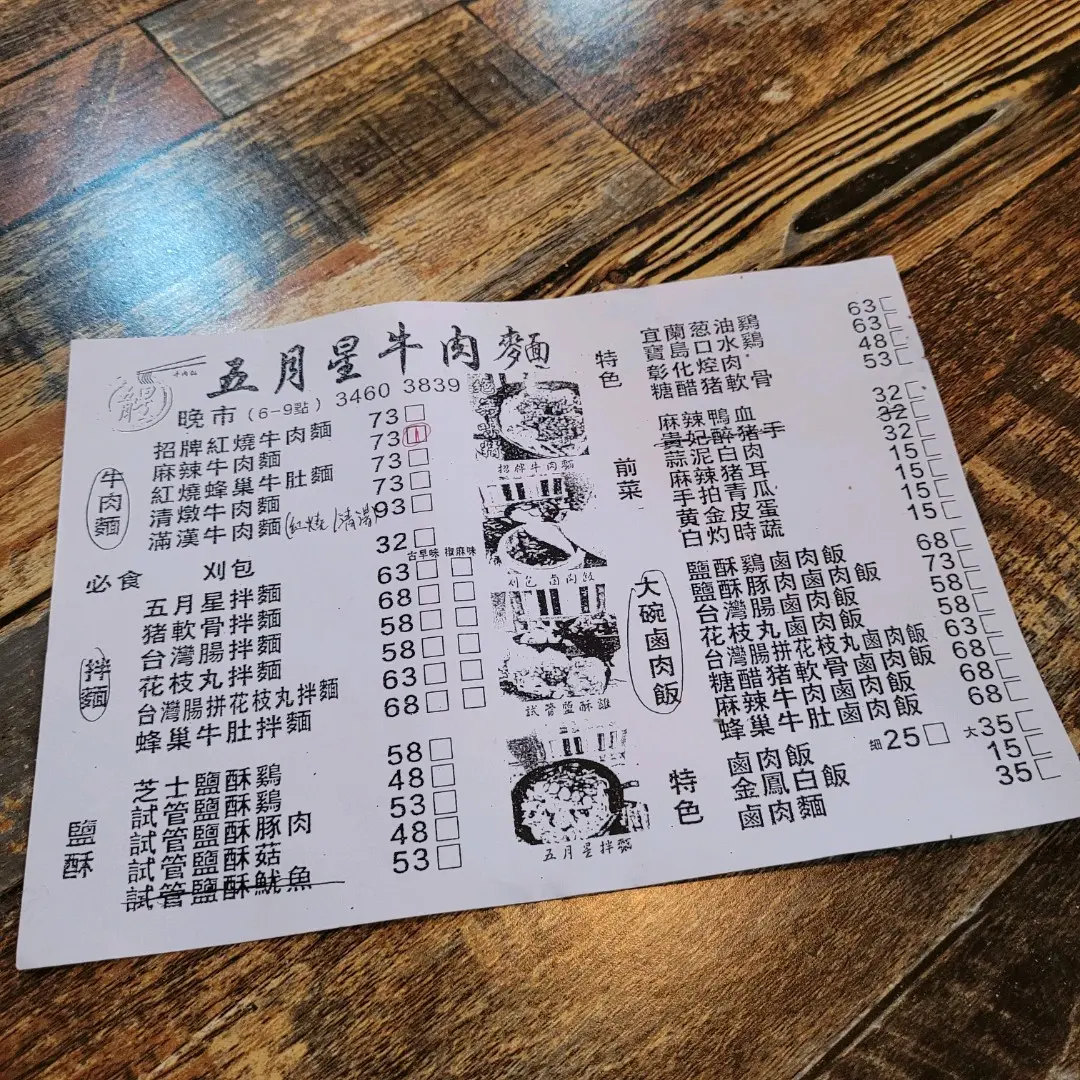 五月星牛肉麵
晚市(6-9點) 3460 3839
牛肉麵
招牌紅燒牛肉麵 73
麻辣牛肉麵 73
紅燒蜂巢牛肚麵 73
清燉牛肉麵 73
滿漢牛肉麵(紅燒/清湯) 93
必食 刈包 32
古早味 椒麻味
拌麵
五月星拌麵 63
豬軟骨拌麵 68
台灣腸拌麵 58
花枝丸拌麵 58
台灣腸拼花枝丸拌麵 63
蜂巢牛肚拌麵 68
鹽酥
芝士鹽酥鷄 58
試管鹽酥鷄 48
試管鹽酥豚肉 53
試管鹽酥菇 48
試管鹽酥魷魚 53
招牌牛肉麵
刈包 鹵肉飯
試管鹽酥雞
五月星拌麵
特色
宜蘭葱油鷄 63
寶島口水鷄 63
彰化焢肉 48
糖醋豬軟骨 53
前菜
麻辣鴨血 32
貴妃醉豬手 32
蒜泥白肉 32
麻辣豬耳 15
手拍青瓜 15
黄金皮蛋 15
白灼時蔬 15
大碗鹵肉飯
鹽酥鷄鹵肉飯 68
鹽酥豚肉鹵肉飯 73
台灣腸鹵肉飯 58
花枝丸鹵肉飯 58
台灣腸拼花枝丸鹵肉飯 63
糖醋豬軟骨鹵肉飯 68
麻辣牛肉鹵肉飯 68
蜂巢牛肚鹵肉飯 68
特色
鹵肉飯 細25 大35
金鳳白飯 15
鹵肉麵 35